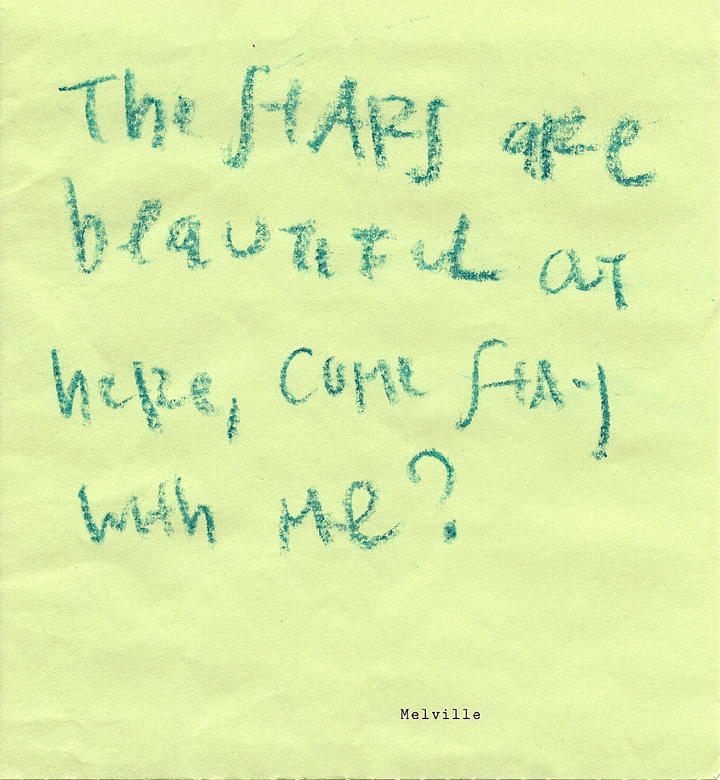 The stARs are
beautiful at
here, come stAy
with Me?
Melville